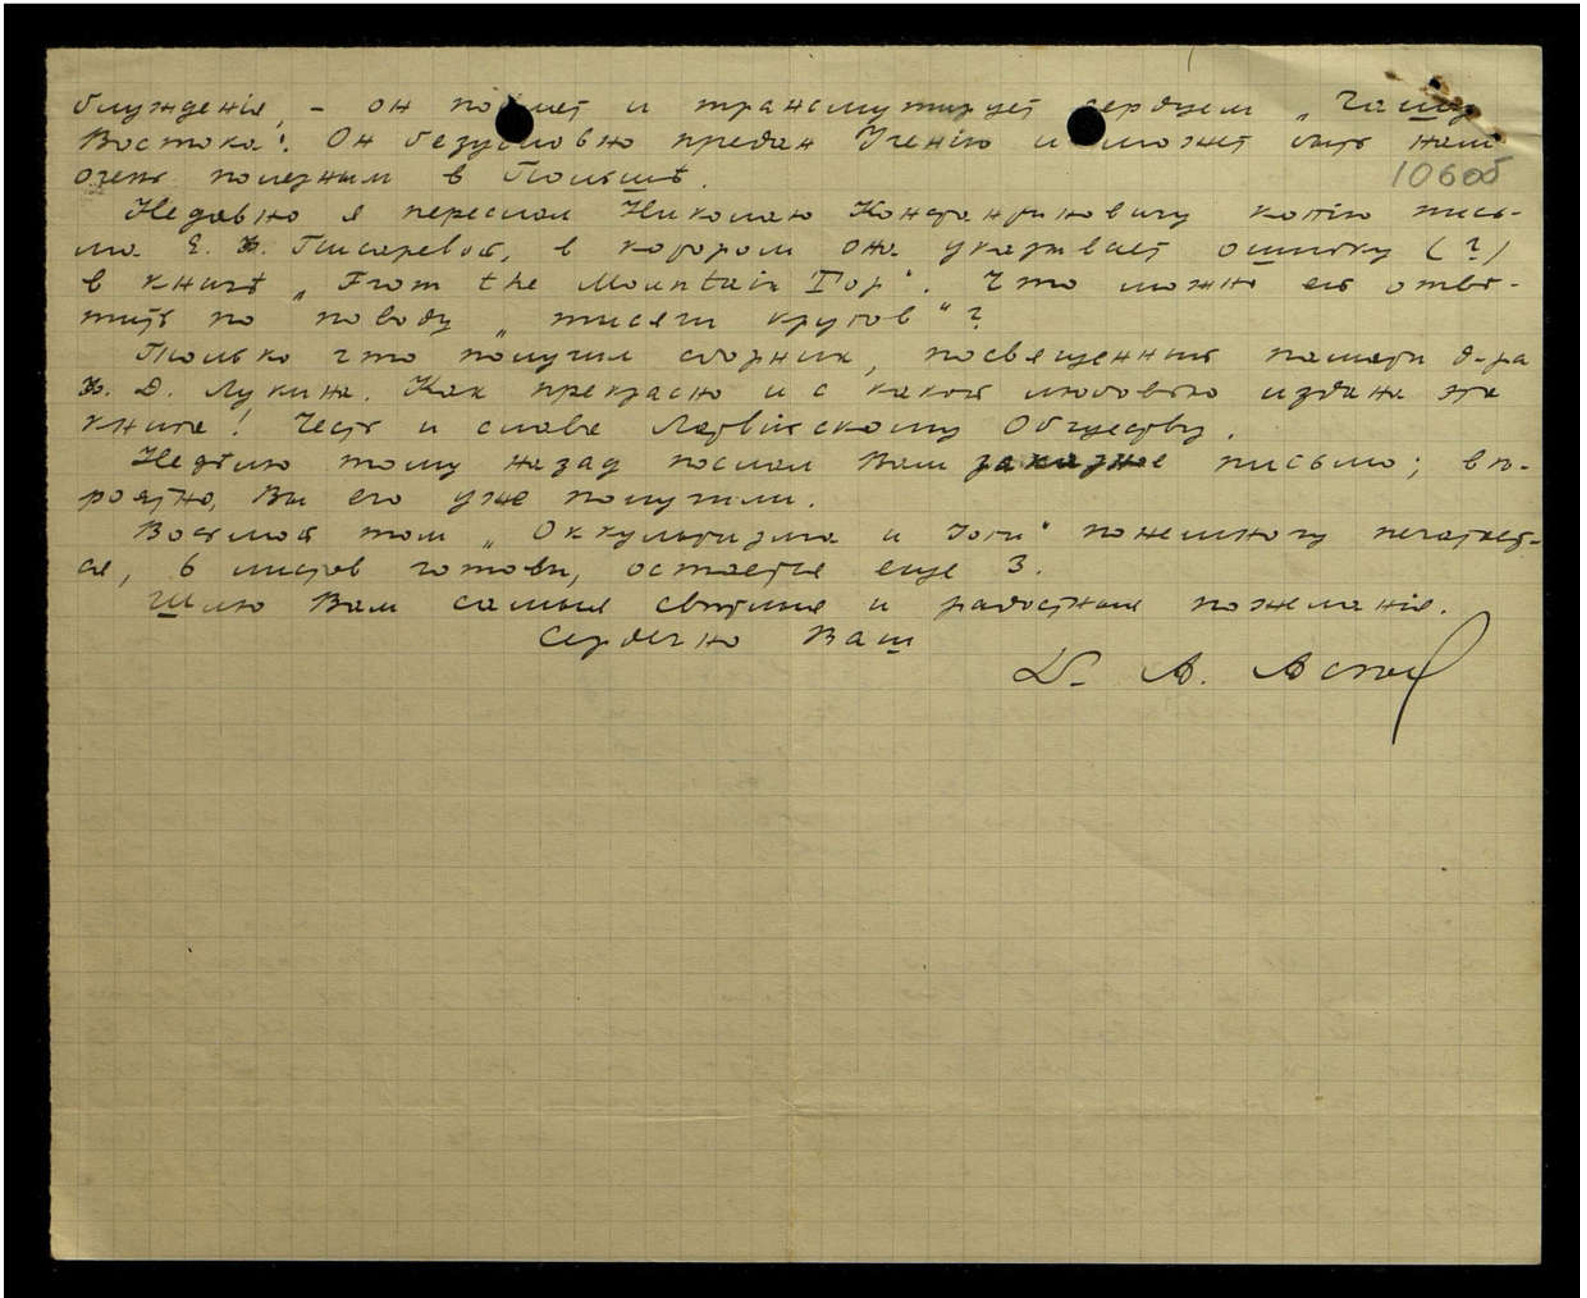 блужденія, – он поймет и трансмутирует сердцем „Чашу
Востока“. Он безусловно предан Ученію и может быть нам
очень полезным в Польшѣ.
106об
Недавно я переслал Николаю Константиновичу копію пись-
ма Е. Ф. Писаревой, в котором она указывает ошибку (?)
в книгѣ „From the Mountain Top“. Что можно ей отвѣ-
тить по поводу „тысячи кругов“?
Только что получил сборник, посвященный памяти д-ра
Ф. Д. Лукина. Как прекрасно и с какой любовью издана эта
книга! Честь и слава Латвійскому Обществу.
Недѣлю тому назад послал Вам заказное письмо; вѣ-
роятно, Вы его уже получили.
Восьмой том „Оккультизма и Іоги“ понемногу печатает-
ся, 6 листов готовы, остается еще 3.
Шлю Вам самыя свѣтлыя и радостныя пожеланія.
Сердечно Ваш
А. Асѣев